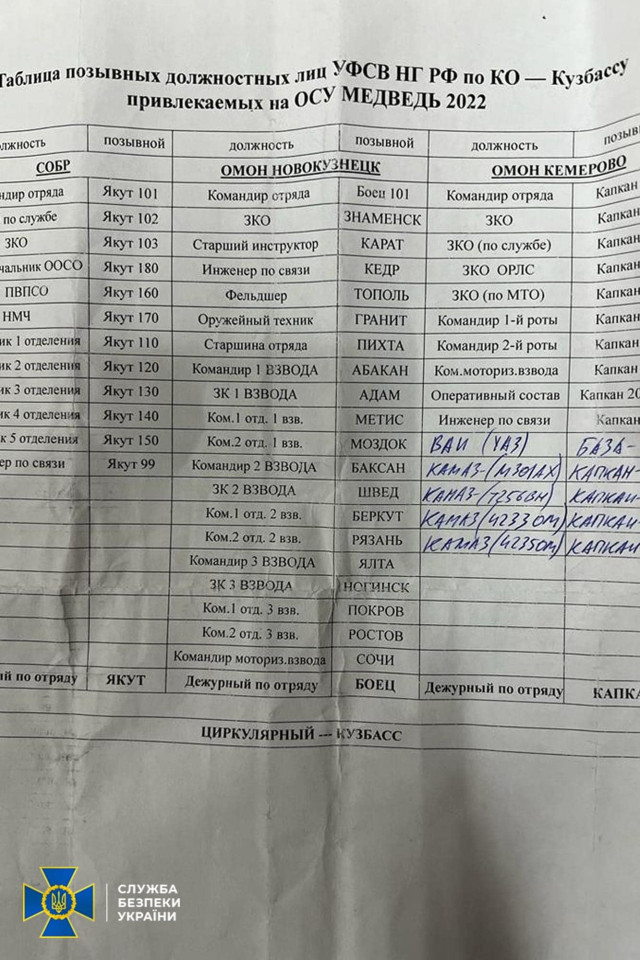 Таблица позывных должностных лиц УФСВ НГ РФ по КО — Кузбассу
привлекаемых на ОСУ МЕДВЕДЬ 2022
позывной должность позывной должность
СОБР ОМОН НОВОКУЗНЕЦК ОМОН КЕМЕРОВО
отряда Якут 101 Командир отряда Боец 101 Командир отряда Капкан
по службе Якут 102 ЗКО ЗНАМЕНСК ЗКО Капкан
ЗКО Якут 103 Старший инструктор КАРАТ ЗКО (по службе) Капкан
ООСО Якут 180 Инженер по связи КЕДР ЗКО ОРЛС Капкан
ПВПСО Якут 160 Фельдшер ТОПОЛЬ ЗКО (по МТО) Капкан
НМЧ Якут 170 Оружейный техник ГРАНИТ Командир 1-й роты Капкан
1 отделения Якут 110 Старшина отряда ПИХТА Командир 2-й роты Капкан
2 отделения Якут 120 Командир 1 ВЗВОДА АБАКАН Ком.моториз.взвода Капкан
3 отделения Якут 130 ЗК 1 ВЗВОДА АДАМ Оперативный состав Капкан 20
4 отделения Якут 140 Ком.1 отд. 1 взв. МЕТИС Инженер по связи Капкан
5 отделения Якут 150 Ком.2 отд. 1 взв. МОЗДОК ВАИ (УАЗ) БАЗА-
по связи Якут 99 Командир 2 ВЗВОДА БАКСАН КАМАЗ- КАПКАН-
ЗК 2 ВЗВОДА ШВЕД КАМАЗ- КАПКАН-
Ком.1 отд. 2 взв. БЕРКУТ КАМАЗ (4233ОМ) КАПКАН-
Ком.2 отд. 2 взв. РЯЗАНЬ КАМАЗ (4235ОМ) КАПКАН-
Командир 3 ВЗВОДА ЯЛТА
ЗК 3 ВЗВОДА НОГИНСК
Ком.1 отд. 3 взв. ПОКРОВ
Ком.2 отд. 3 взв. РОСТОВ
Командир моториз.взвода СОЧИ
по отряду ЯКУТ Дежурный по отряду БОЕЦ Дежурный по отряду КАПКА
ЦИРКУЛЯРНЫЙ --- КУЗБАСС
СЛУЖБА
БЕЗПЕКИ
УКРАЇНИ